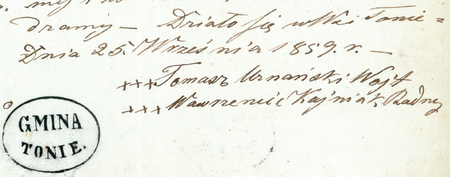 dramy — Działo się w Wsi Tonie =
Dnia 25 Września 1859 r. —
+++ Tomasz Urnański Wojt
+++ Wawrzeniec Kaźniak, Radny
GMINA
TONIE.